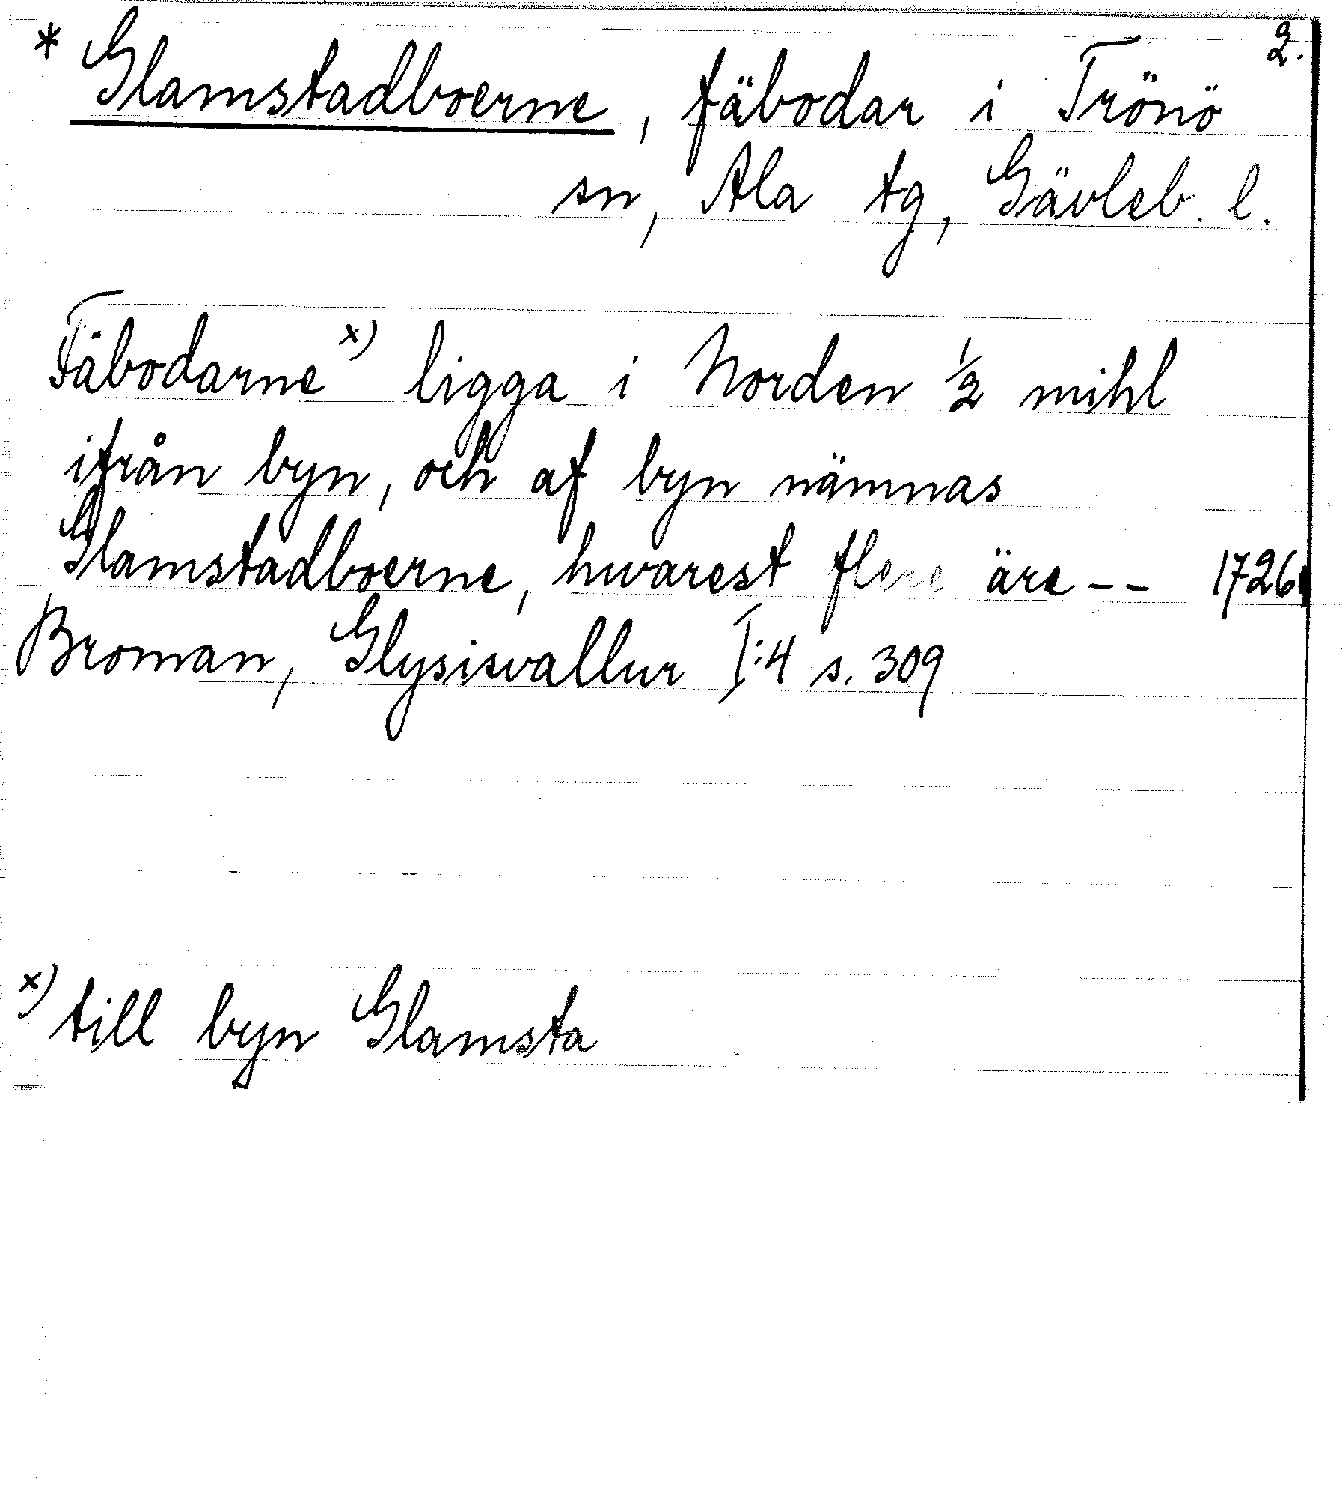 2.
* Glamstadboerne, fäbodar i Trönö
sn, Ala tg, Gävleb. l.
Fäbodarne x) ligga i Norden 1/2 mihl
ifrån byn, och af byn nämnas
Glamstadboerne, hwarest flere äre -- 1726
Broman, Glysisvallur I:4 s. 309
x) till byn Glamsta